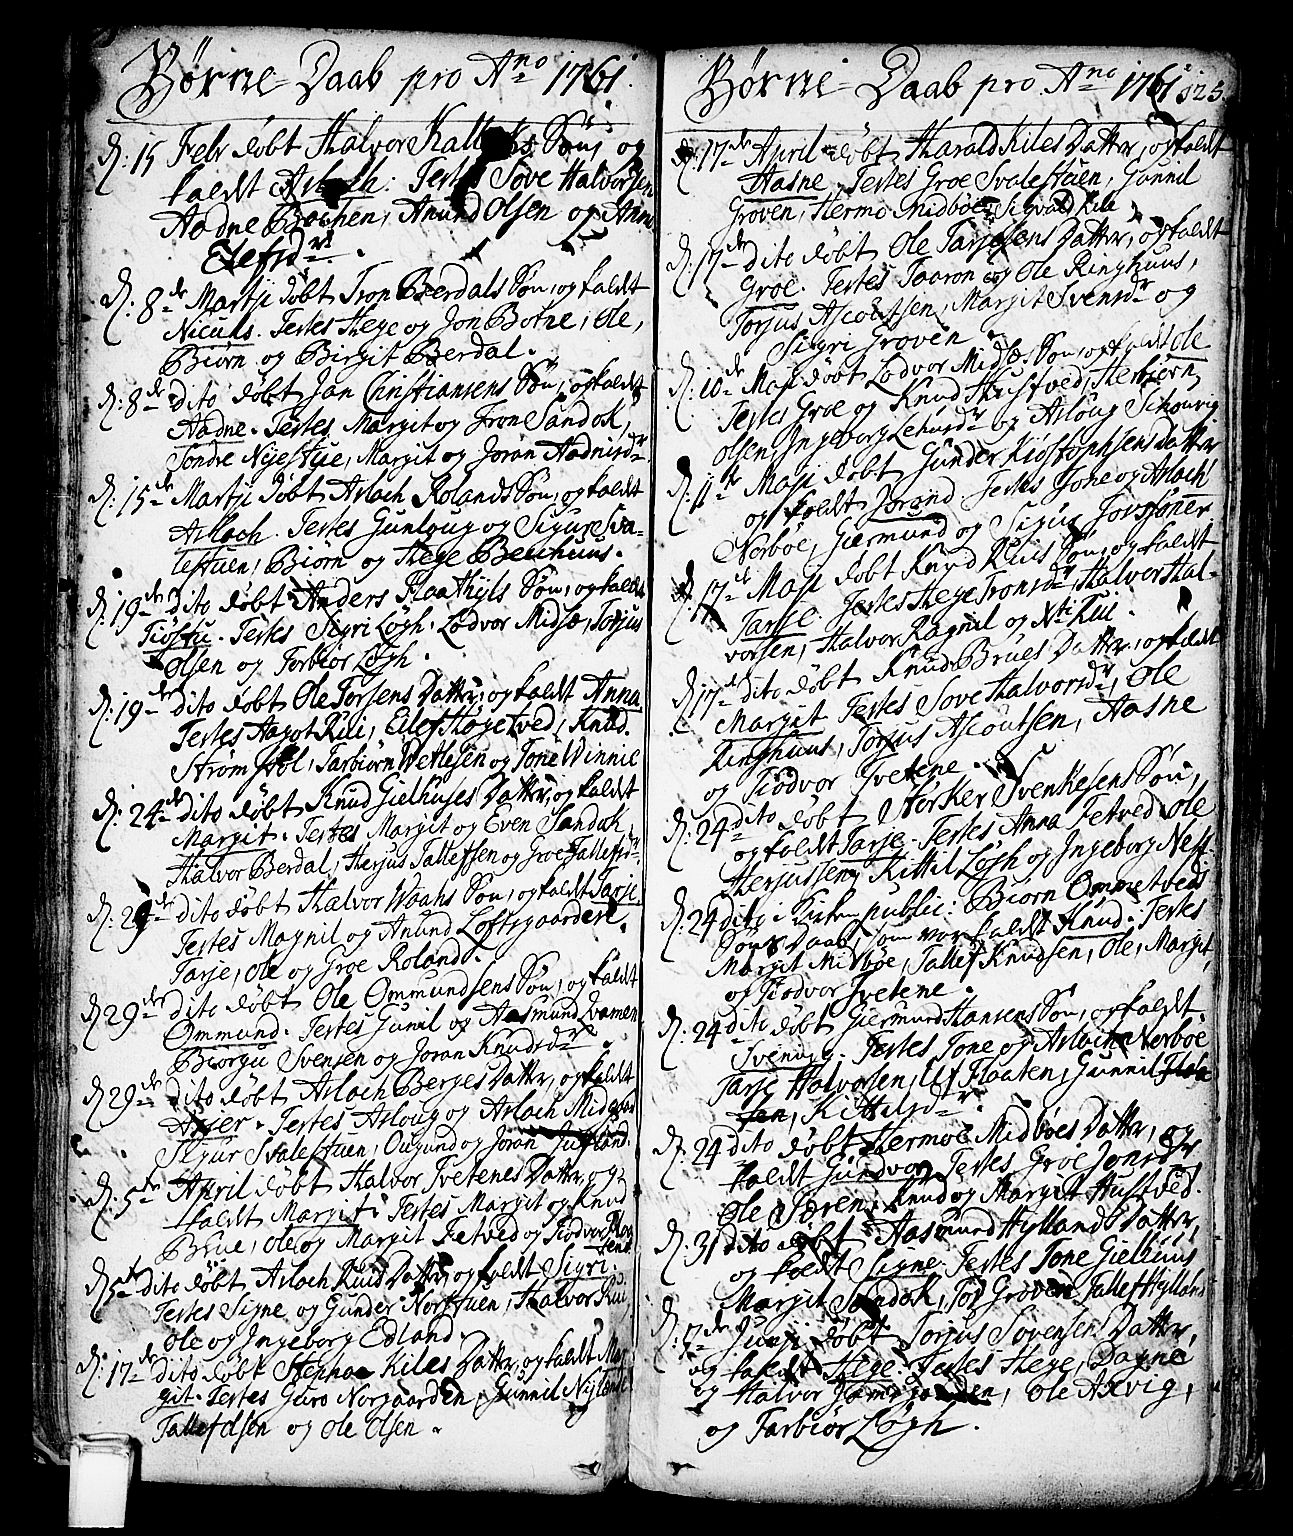 Børne-Daab pro Ano 1761.
D: 15 Febr døbt Halvor Søn, og
kaldt Aslach: Testes Søve Halvorsen
Aadne Bachen, Anund Olsen og Anne
D: 8de Martji døbt Tron Berdals Søn, og kaldt
Niculs. Testes Hege og Jon Børne, Ole,
Biørn og Birgit Berdal.
D: 8de dito døbt Jan Christiansens Søn, og kaldt
Aadne. Testes Margit og Tron Sandok,
Tondre Nejestue, Margit og Joran Aadnisdr
D: 15de Martji døbt Aslach Rolands Søn, og kaldt
Aslach. Testes Gunloug og Sigur Sva-
lestuen, Biørn og Hege Berhuus.
D: 19de dito døbt Anders Flaathyls Søn, og kaldt
Testes Sigri Løgh. Lodvor Midsæ, Torjus
Olsen og Torbiør Løgh.
D: 19de dito døbt Ole Torsens Datter, og kaldt Anna
Testes Aagot Kili, Eilef Høgetved, Knud
Strømsbol, Tarbiørn Wetlesen og Tone Winnie
D: 24de dito døbt Knud Gielhuses Datter, og kaldt
Margit. Testes Margit og Even Sandok,
Halvor Berdal, Herjus Tallefsen og Groe Tallefsdr
D: 29de dito døbt Halvor Waahs Søn, og kaldt Tarje
Testes Magnil og Anund Loftsgaardene.
Tarje, Ole og Groe Roland.
D 29de dito døbt Ole Ommundsens Søn, og kaldt
Ommund. Testes Gunil og Aasmund Qvamen
Biorgu Svensen og Joran Knudsdr
D 29de dito døbt Aslach Berges Datter, og kaldt
Asier. Testes Asloug og Aslach Midgaard
Sigur Svalestuen, Ougund og Joran Jufland.
D: 5te April døbt Halvor Tvetenes Datter, og
kaldt Margit. Testes Margit og Knud
Brue, Ole og Margit Fetved og Tiodvor
D 5te dito døbt Aslach Ruis Datter, og kaldt Sigri.
Testes Signe og Gunder Norstuen, Halvor Rui,
Ole og Ingeborg Edland.
D: 17de dito døbt Kiles Datter, og kaldt Mar
git. Testes Guro Norgaarden, Gunnil Nystand
Tallef Olsen og Ole Olsen.
Børne-Daab pro Ano 1761. 325.
D: 17de April døbt Harald Kiles Datter, og kaldt
Aasne. Testes Groe Svalestuen, Gunnil
Groven, Hermo Midbøe, Sigvald Kile
D: 17de dito døbt Ole Tarjesens Datter, og kaldt
Groe. Testes Taaron og Ole Ringhuus,
Torjus Ascoutsen, Margit Svensdr og
Sigri Groven.
D: 10de Maji døbt Lodvor Midsæs Søn, og kaldt Ole
Testes Groe og Knud Hustved, Herbiørn
Olsen, Ingeborg og Asloug Schouvig
D: 11te Maji døbt Gunder Kiostophsens Datter
og kaldt Jorand. Testes Tone og Aslach
Norbøe, Giermund og Sigur
D: 17de Maji døbt Knud Ruis Søn, og kaldt
Tarje. Testes Hege Tronsdr, Halvor Hal-
vorsen, Halvor Ragnil og
D: 17de dito døbt Knud Brues Datter, og kaldt
Margit. Testes Søve Halvorsdr, Ole
Ringhuus, Torjus Ascoutsen, Aasne
og Tiodvor Tvetene.
D: 24de dito døbt Nørker Svenkesens Søn,
og kaldt Tarje. Testes Anna Fetved Ole
Herjussen, Kittil Løgh og Ingeborg
D: 24 dito i Kirken public: Biørn Ommetveds
Søns Daab, som var kaldt Knud. Testes
Margit Midbøe, Tallef Knudsen, Ole, Margit,
og Tiodvor Tvetene.
D: 24 dito døbt Giermund Hansens Søn, og kaldt
Testes Tone og Aslach Norbøe
Tarje Halvorsen, Flaaten, Gunnil
Kittilsdr.
D: 24 dito døbt Hermoe Midbøes Datter, og
kaldt Gundvor, Testes Groe Jonsdr
Ole Særen, Knud og Margit Hustved.
D: 31 dito døbt Aasmund Hyllands Datter,
og kaldt Signe. Testes Tone Gielhuus
Margit Sandok, Tor Groven Tallef Hylland
D: 7de Junji døbt Torjus Sovensens Datter,
og kaldt Hege. Testes Hege, Dagne
og Halvor, Ole Axvig,
og Tarbiør Løgh.